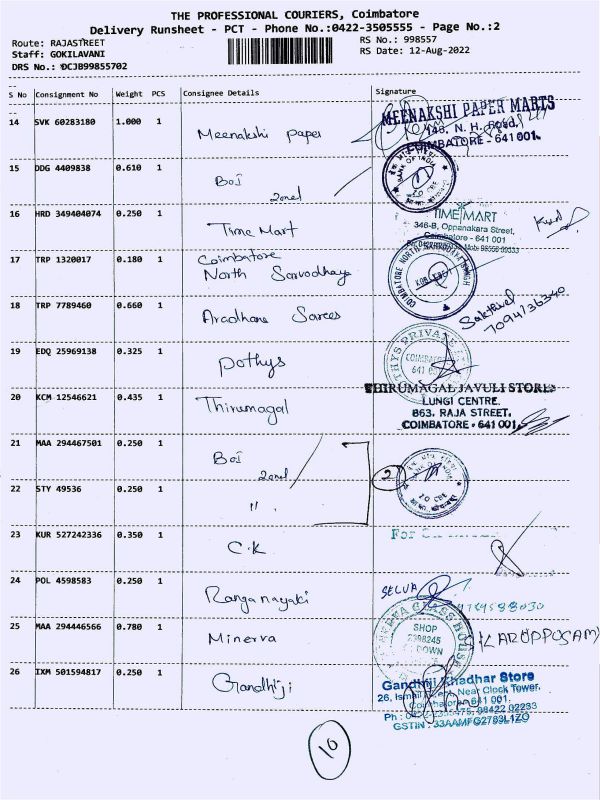 THE PROFESSIONAL COURIERS, Coimbatore
Delivery Runsheet - PCT - Phone No.:0422-3505555 - Page No.:2
Route: RAJASTREET
RS No.: 998557
Staff: GOKILAVANI
RS Date: 12-Aug-2022
DRS No.: DCJB99855702
S No Consignment No Weight PCS Consignee Details Signature
14 SVK 60283180 1.000 1 Meenakshi paper
MEENAKSHI PAPER MARTS
148, N. H. Road,
COIMBATORE - 641 001.
15 DDG 4409838 0.610 1 BoI
zonel
BANK OF INDIA
16 HRD 349404074 0.250 1 Time Mart
TIME MART
346-B, Oppanakara Street,
Coimbatore - 641 001
17 TRP 1320017 0.180 1 Coimbatore
North Sarvodhaya
18 TRP 7789460 0.660 1 Aradhana Sarees
Sakthivel
7094136340
19 EDQ 25969138 0.325 1 pothys
20 KCM 12546621 0.435 1 Thirumagal
THIRUMAGAL JAVULI STORES
LUNGI CENTRE.
863. RAJA STREET,
COIMBATORE - 641 001.
21 MAA 294467501 0.250 1 BoI
zonel
2
22 STY 49536 0.250 1 "
23 KUR 527242336 0.350 1 C.K
For
24 POL 4598583 0.250 1 Ranganayaki
SELVA
25 MAA 294446566 0.780 1 Minerva
GLASS HOUSE
SHOP
2398245
(KARUPPUSAM)
26 IXM 501594817 0.250 1 Gandhiji
Gandhiji Khadhar Store
Near Clock Tower,
Coimbatore - 641 001.
GSTIN : 33AAMFG2783L1ZO
10